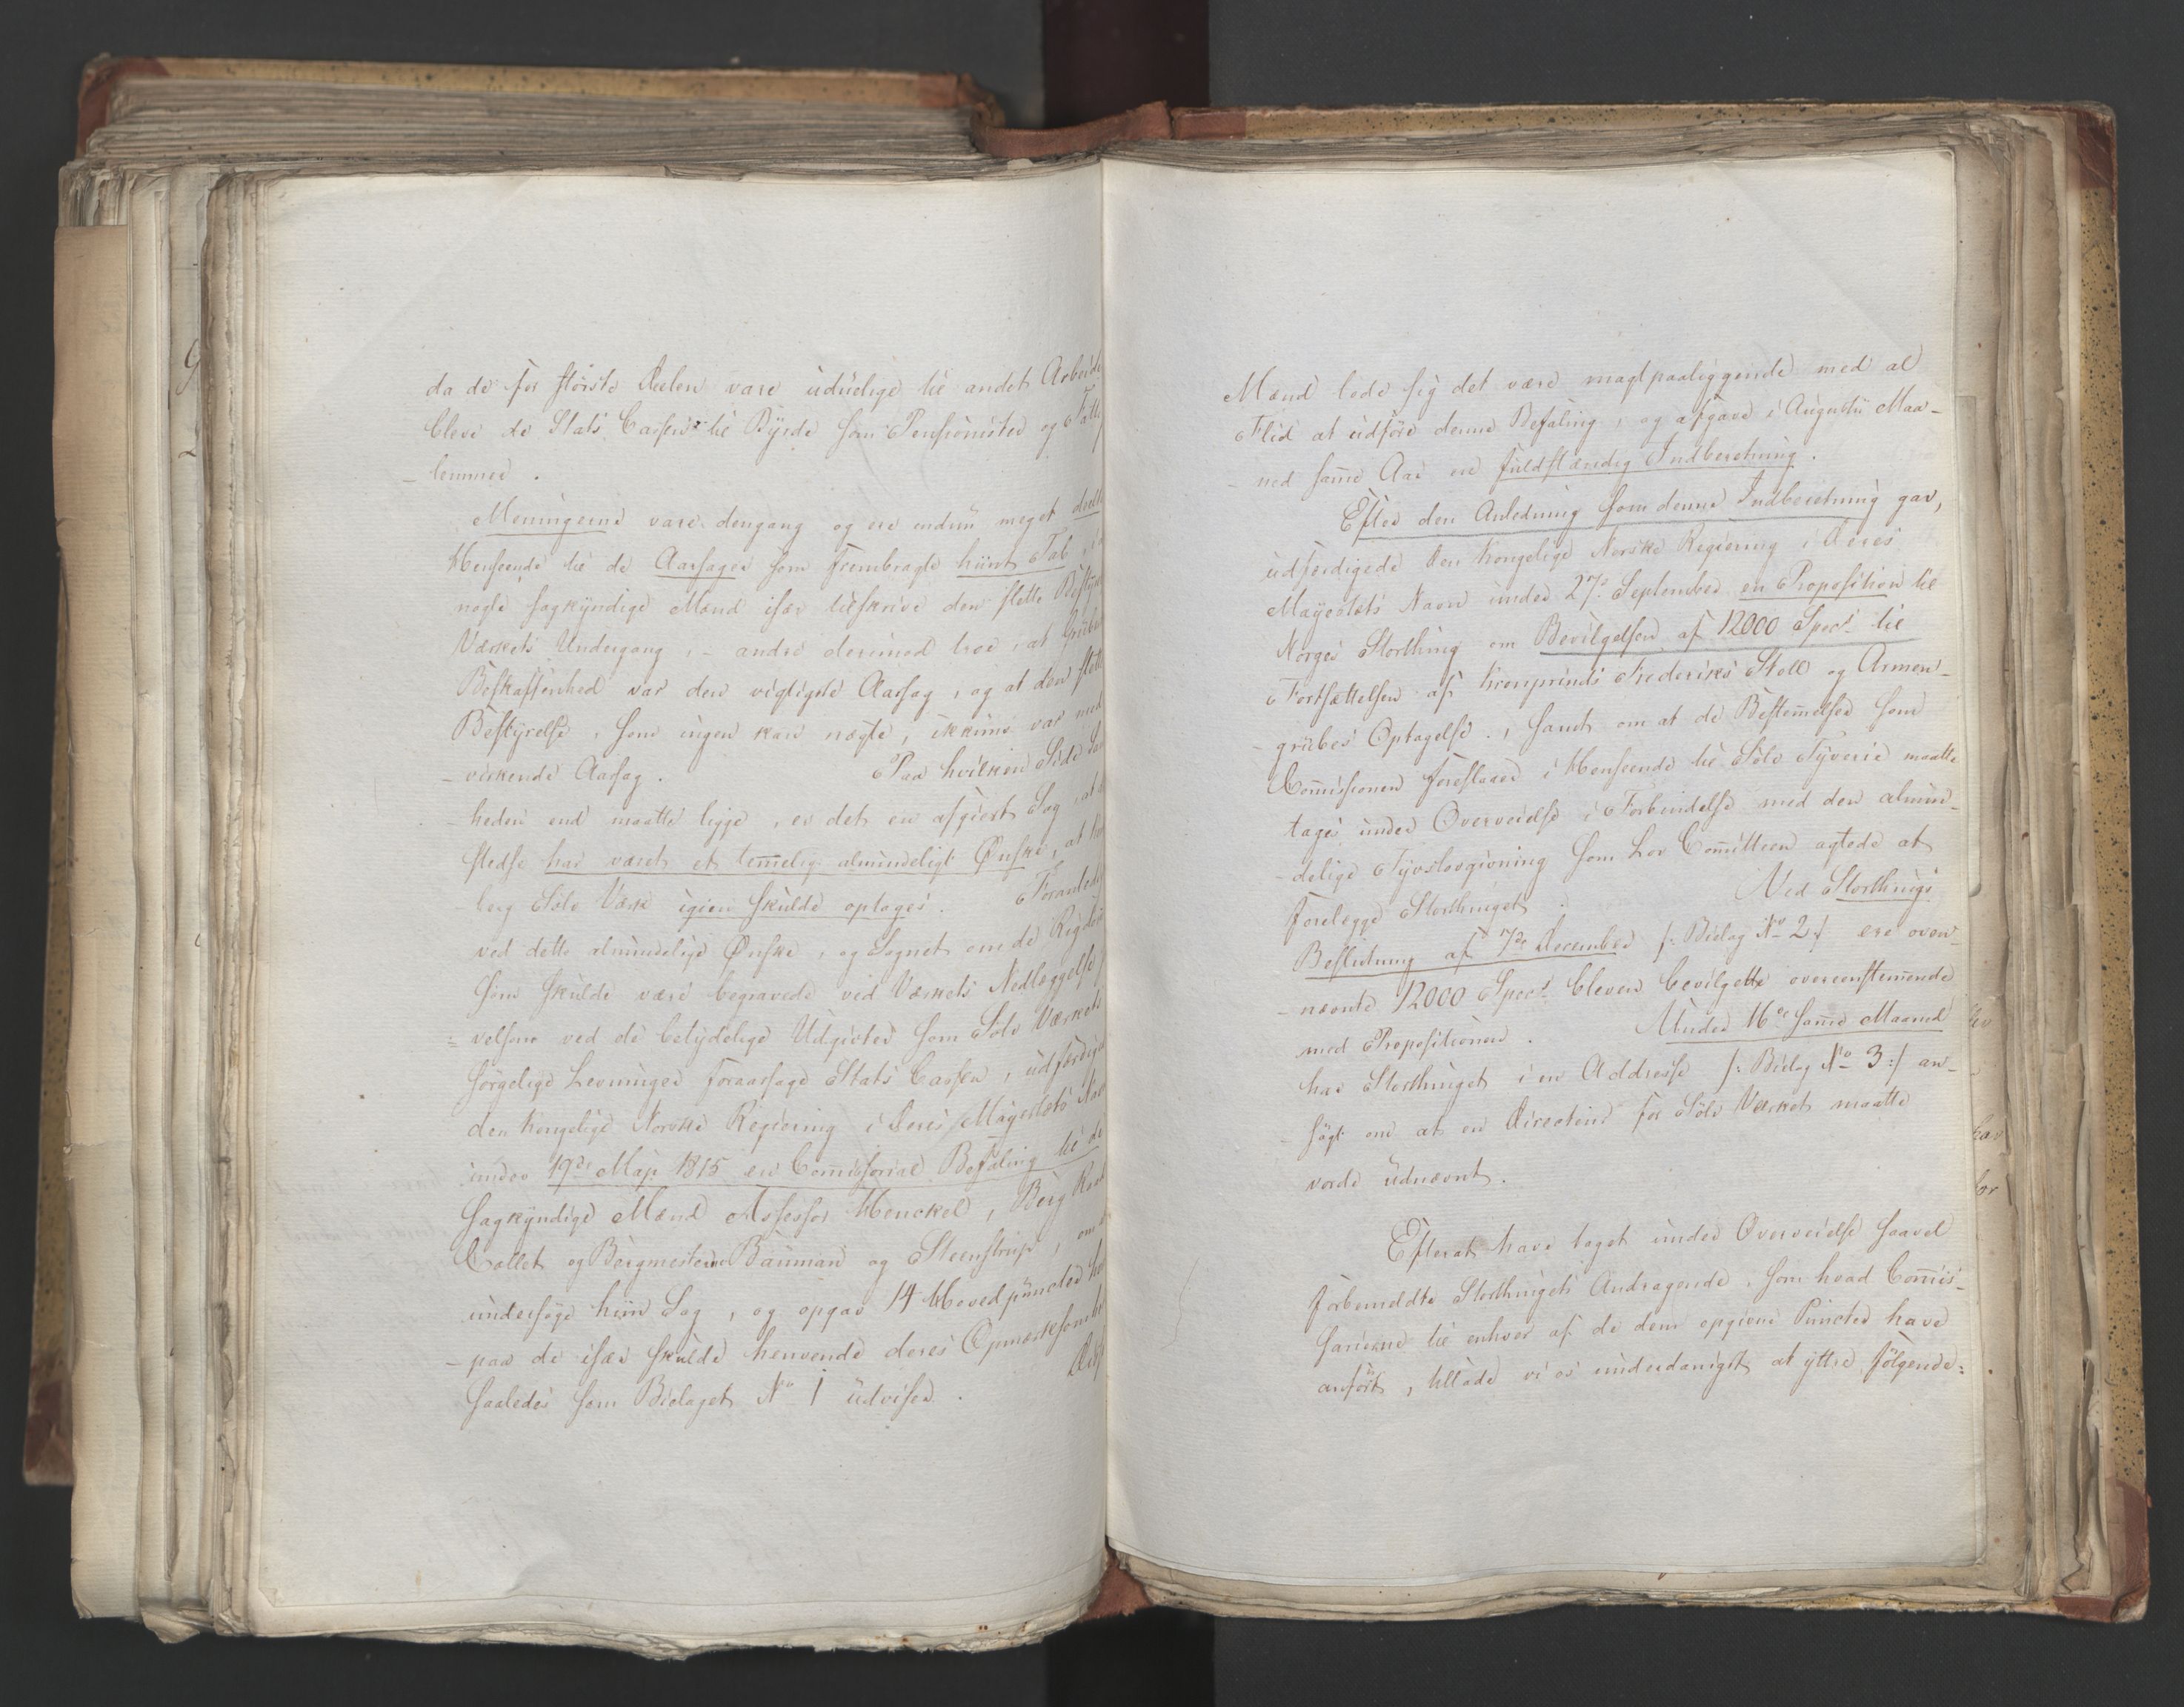 da de for störste Deelen vare uduelige til andet Arbeide
bleve de Stats Cassen til Byrde som Pensionister og Fatt
lemmer.
Meningerne vare dengang og ere endnu meget deelt
Henseende til de Aarsager som frembragte hiint Tab,
nogle sagkyndige Mænd især tilskrive den slette Besty
Værkets Undergang, - andre derimod troe, at Grube
Beskaffenhed var den vigtigste Aarsag, og at den slette
Bestyrelse, som ingen kan nægte, ikkuns var med
-virkende Aarsag. Paa hvilken Side Sa
heden end maatte ligge, er det en afgiort Sag, at
stedse har været et temmelig almindeligt Ønske, at
berg Sölv Værk igien skulde optages. Foranledi
ved dette almindelige Ønske, og Sagnet om de Rigdo
som skulde være begravede ved Værkets Nedlæggelse
velsom ved de betydelige Udgivter som Sölv Værkets
sörgelige Levninger foraarsage Stats Cassen, udfærdige
den kongelige Norske Regiering i Deres Mayestæts Nav
under 19de Maji 1815 en Commissorial Befaling til de
sagkyndige Mænd Assessor Henckel, Berg Raad
Collet og Bergmesterne Bauman og Steenstrup, om
undersöge hiin Sag, og opgav 14 Hovedpuncter hv
-paa de især skulde henvende deres Opmærksomhe
saaledes som Bielaget No 1 udviser.
Mænd lode sig det være magtpaaliggende med al
Flid at udföre denne Befaling, og afgave i Augustii Maa-
-ned samme Aar en fuldstændig Indberetning.
Efter den Anledning som denne Indberetning gav,
udfærdigede den kongelige Norske Regiering i Deres
Mayestæts Navn under 27de September en Proposition til
Norges Storthing om Bevilgelsen af 12000 Specr til
Fortsættelsen af Kronprinds Frederiks Stoll og Armen-
-grubes Optagelse, samt om at de Bestemmelser som
Commissionen foreslaaer i Henseende til Sölv Tyverie maatte
tages under Overveielse i Forbindelse med den almin-
-delige Tyvslovgivning som Lov Committeen agtede at
forelægge Storthinget. Ved Storthings
Beslutning af 7de December /: Bielag No 2 :/ ere oven-
-nævnte 12000 Specr blevne bevilgette overeenstemmende
med Propositionen. Under 16de samme Maaned
har Storthinget i en Addresse /: Bielag No 3 :/ an-
-sögt om at en Directeur for Sölv Værket maatte
vorde udnævnt.
Efterat have taget under Overveielse saavel
forbemeldte Storthingets Andragende, som hvad Commis-
sarierne til enhver af de dem opgivne Puncter have
anfört, tillade vi os underdanigst at yttre fölgende: